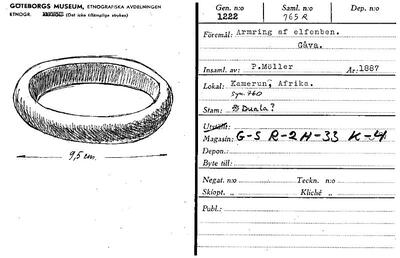 GÖTEBORGS MUSEUM, ETNOGRAFISKA AVDELNINGEN
ETNOGR. (Det icke tillämpliga strykes)
9,5 cm.
Gen. n:o Saml. n:o Dep. n:o
1222 765 R
Föremål: Armring af elfenben.
Gåva.
Insaml. av: P.Möller År: 1887
Lokal: Kamerun, Afrika.
Syn. 760
Stam: Duala?
Utställt:
Magasin: G-S R-2 H-33 K-4
Depon.:
Byte till:
Negat. n:o Teckn. n:o
Skiopt. „ Kliché „
Publ.: